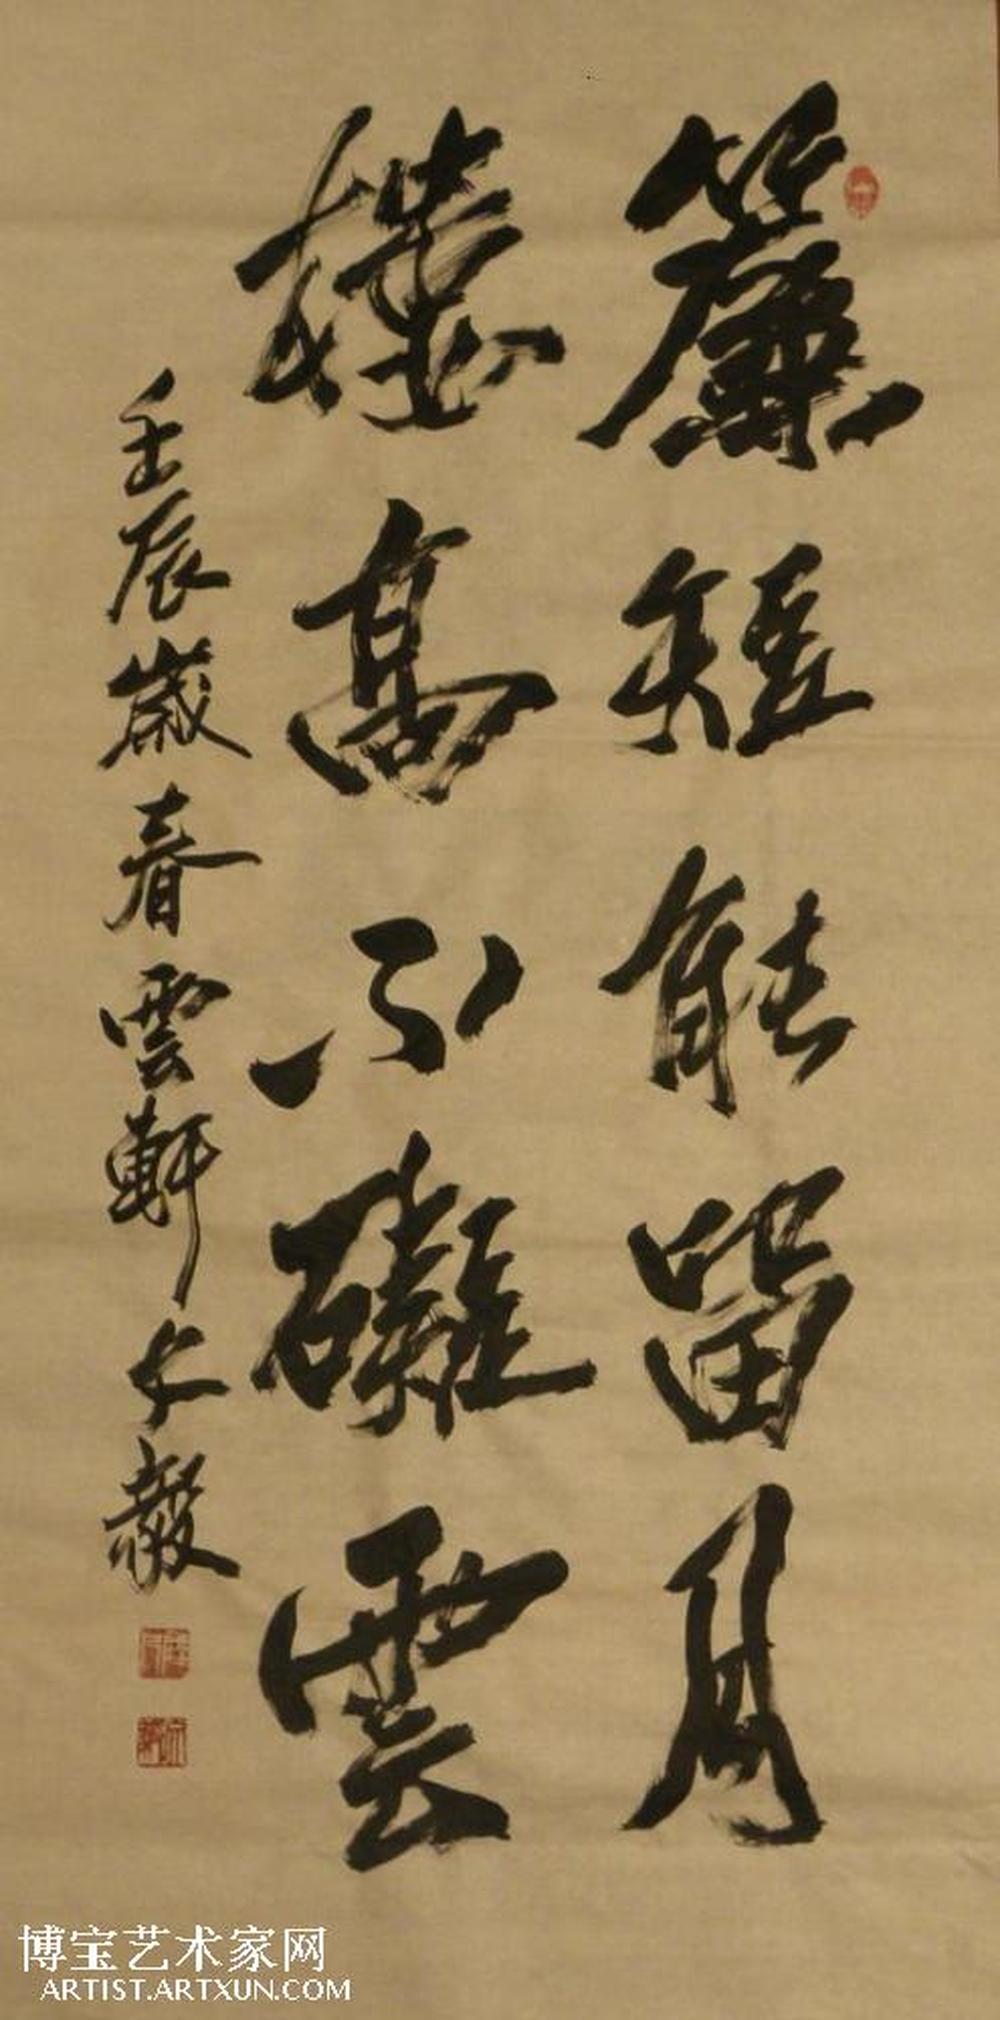 簾短能留月
樓高不礙雲
壬辰歲春雲軒毅
博宝艺术家网
ARTIST.ARTXUN.COM